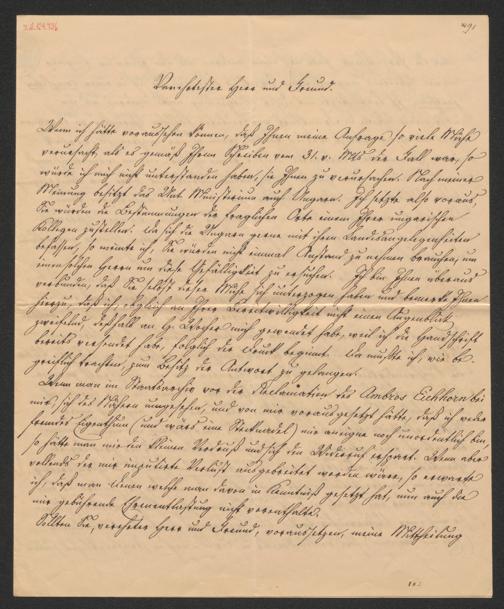 Verehrtester Herr und Freund.
Wenn ich hätte voraussehen können, daß Ihnen meine Anfrage so viele Mühe
verursacht, als es gemäß Ihrem Schreiben vom 31. v. Mts der Fall war, so
würde ich mich nicht unterstanden haben, sie Ihnen zu verursachen. Nach meiner
Meinung besitzt das Unt. Ministerium auch Ungarn. Ich setzte also voraus,
Sie würden die Bestimmungen der fraglichen Orte einem Ihrer ungarischen
Kollegen zustellen. Da sich die Ungarn gerne mit ihren Landsangelegenheiten
befassen, so meinte ich, Sie würden nicht einmal Anstand zu nehmen brauchen, um
einen solchen Herrn um diese Gefälligkeit zu ersuchen. Ich bin Ihnen überaus
verbunden, daß Sie selbst dieser Mühe sich unterzogen haben und bemerke Ihnen
hierzu, daß ich, lediglich an Ihrer Bereitwilligkeit nicht einen Augenblick
zweifelnd, deßhalb an mich gewendet habe, weil ich die Handschrift
bereits versendet habe, folglich der Druck beginnt. Da mußte ich, wie be-
greiflich trachten, zum Besitz der Antwort zu gelangen.
Wenn man im Staatsarchiv vor der Reclamation des Ambros Eichhorn bei
mir sich des Nähern umgesehen, und von mir vorausgesetzt hätte, daß ich weder
fremdes Eigenthum (und wärs eine Stecknadel) mir aneigne noch unordentlich bin,
so hätte man mir den kleinen Verdruß und sich den Widerruf erspart. Wenn aber
vollends der mir Verlust ausgebreitet worden wäre, so erwarte
ich, daß man denen welche man davon in Kenntniß gesetzt hat, nun auch die
mir gebührende Ehrenentlastung nicht vorenthalte.
Sollten Sie, verehrter Herr und Freund, voraussetzen, meine Mittheilung